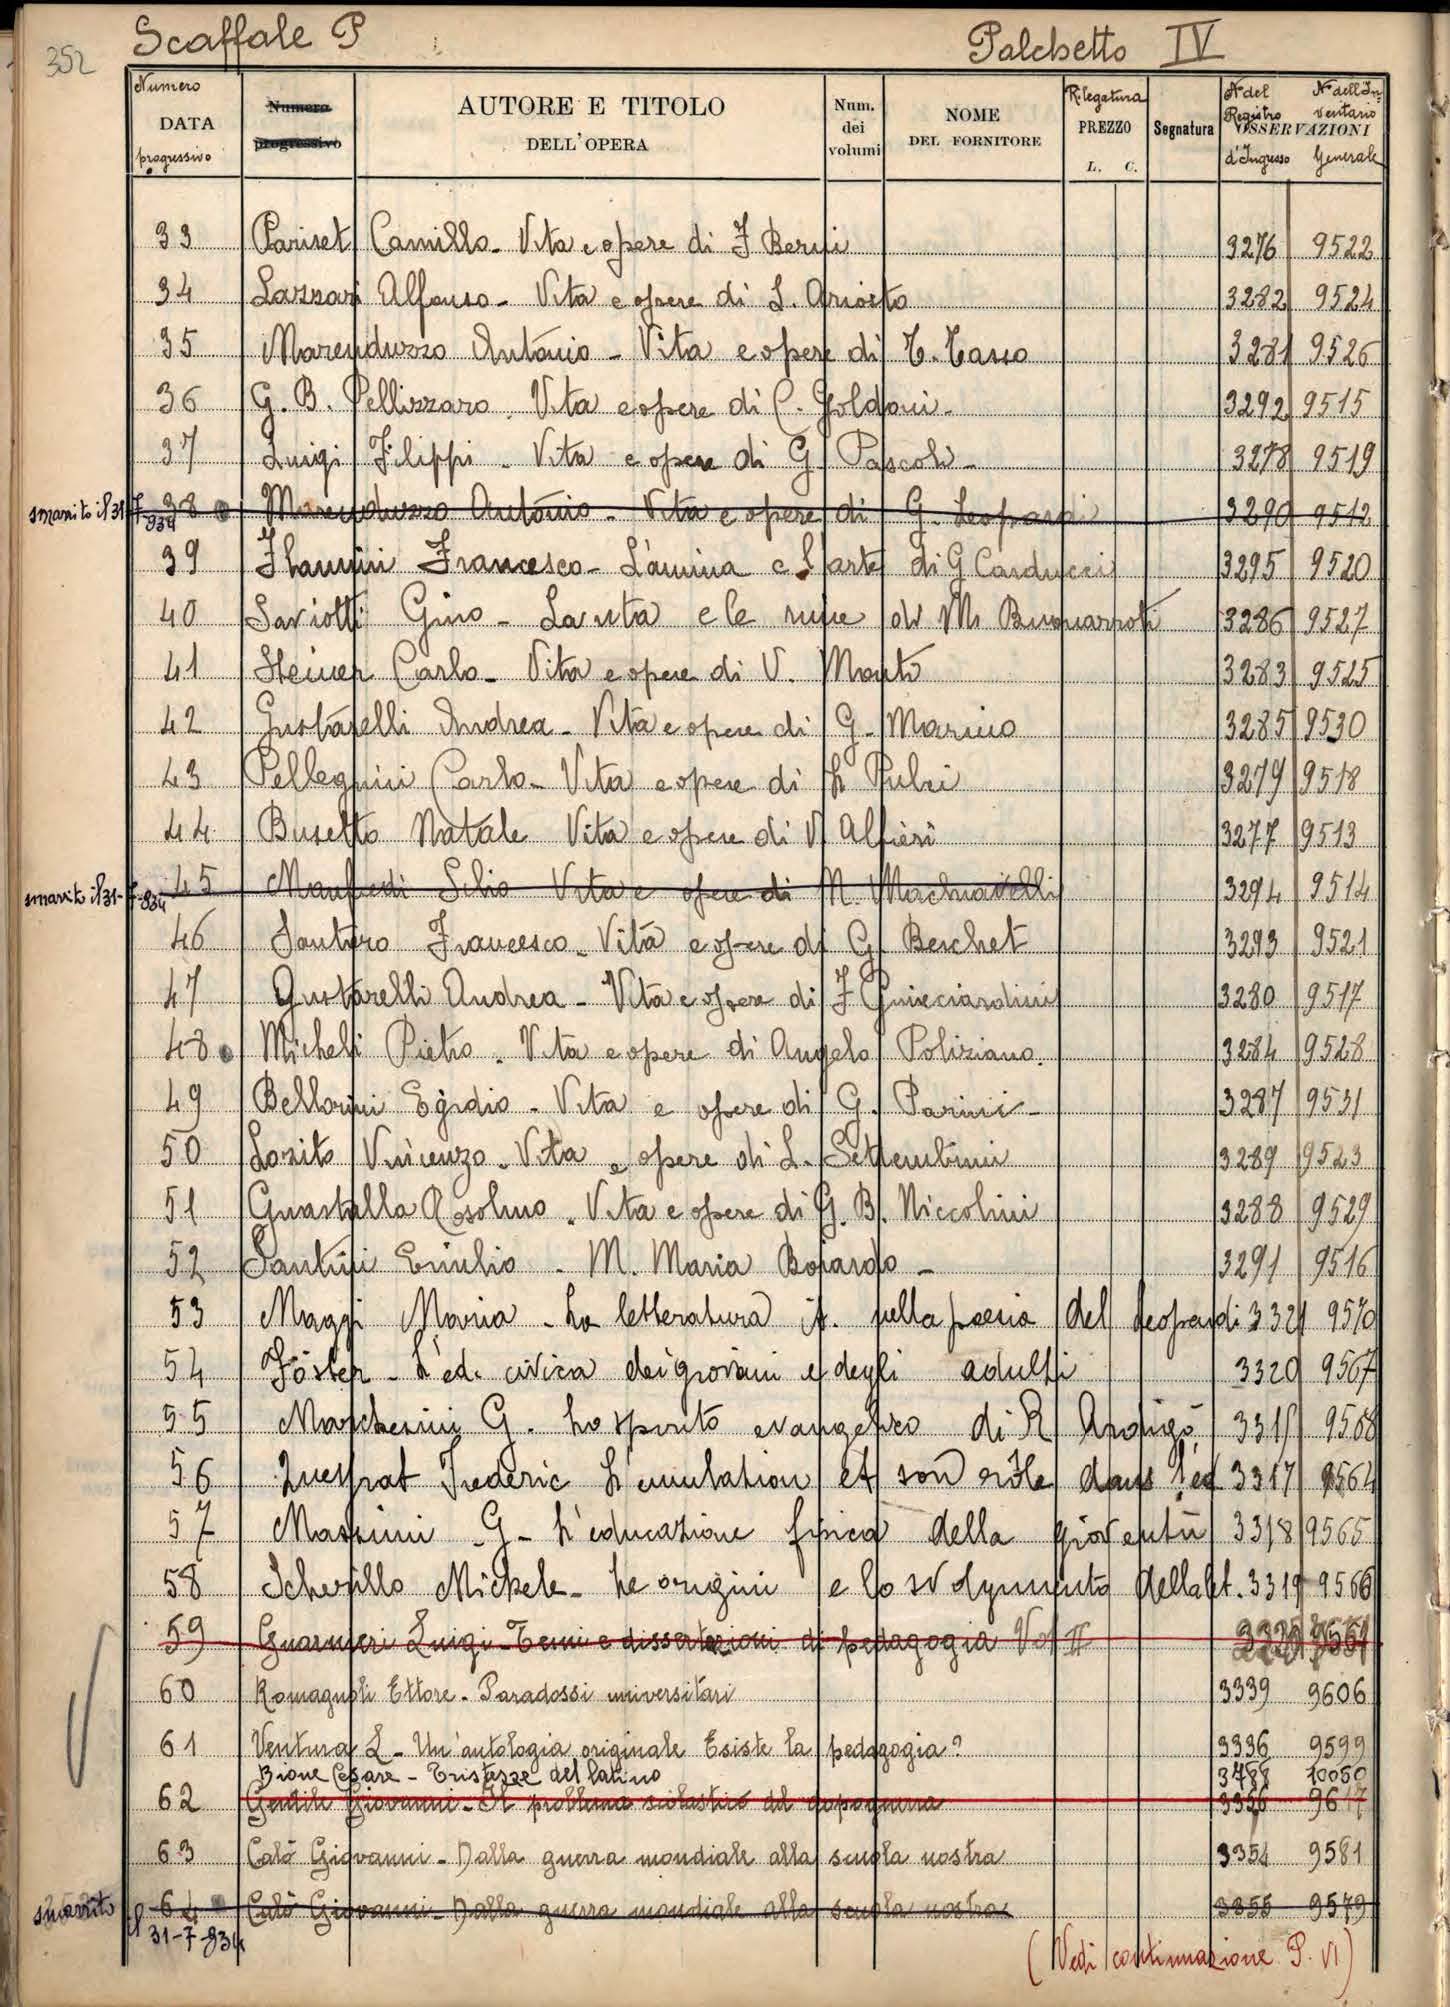 352 Scaffale P Palchetto IV
Numero DATA progressivo Numero progressivo AUTORE E TITOLO DELL'OPERA Num. dei volumi NOME DEL FORNITORE Rilegatura PREZZO L. C. Segnatura N del Registro d'Ingresso OSSERVAZIONI N dell'Inventario Generale
33 Pariset Camillo - Vita e opere di F Berni 3276 9522
34 Lazzari Alfonso - Vita e opere di L. Ariosto 3282 9524
35 Marenduzzo Antonio - Vita e opere di T. Tasso 3281 9526
36 G. B. Pellizzaro. Vita e opere di C. Goldoni - 3292 9515
37 Luigi Filippi - Vita e opere di G Pascoli - 3278 9519
smarrito il 31-7-934 38 Marenduzzo Antonio - Vita e opere di G. Leopardi 3290 9512
39 Flamini Francesco - L'anima e l'arte di G Carducci 3295 9520
40 Saviotti Gino - La vita e le rime di M Buonarroti 3286 9527
41 Steiner Carlo - Vita e opere di V. Monti 3283 9525
42 Gustarelli Andrea - Vita e opere di G. Marino 3285 9530
43 Pellegrini Carlo - Vita e opere di L Pulci 3279 9518
44 Busetto Natale Vita e opere di V Alfieri 3277 9513
smarrito il 31-7-934 45 Manfredi Silio Vita e opere di N. Machiavelli 3294 9514
46 Santoro Francesco - Vita e opere di G. Berchet 3293 9521
47 Gustarelli Andrea - Vita e opere di F Guicciardini 3280 9517
48 Micheli Pietro - Vita e opere di Angelo Poliziano. 3284 9528
49 Bellorini Egidio - Vita e opere di G. Parini - 3287 9531
50 Lozito Vincenzo - Vita e opere di L. Settembrini 3289 9523
51 Guastalla Rosolino - Vita e opere di G. B. Niccolini 3288 9529
52 Santini Emilio - M. Maria Boiardo - 3291 9516
53 Maggi Maria - La letteratura it. nella poesia del Leopardi 3321 9570
54 Föster - L'ed. civica dei giovani e degli adulti 3320 9567
55 Marchesini G. Lo spirito evangelico di R Ardigò 3315 9568
56 Queyrat Frederic L'emulation et son rôle dans l'éd 3317 9564
57 Mazzini G - L'educazione fisica della gioventù 3318 9565
58 Scherillo Michele - Le origini e lo svolgimento della let. 3319 9566
59 Guarnieri Luigi - Temi e dissertazioni di pedagogia Vol II
60 Romagnoli Ettore - Paradossi universitari 3339 9606
61 Ventura L - Un'antologia originale Esiste la pedagogia? 3336 9599
Bione Cesare - Tristezze del latino 3488 10050
62 Gentile Giovanni - Il problema scolastico del dopoguerra 3356 9617
63 Calò Giovanni - Dalla guerra mondiale alla scuola nostra 3354 9581
smarrito il 31-7-934 64 Calò Giovanni - Dalla guerra mondiale alla scuola nostra 3355 9579
(Vedi continuazione P. VI)